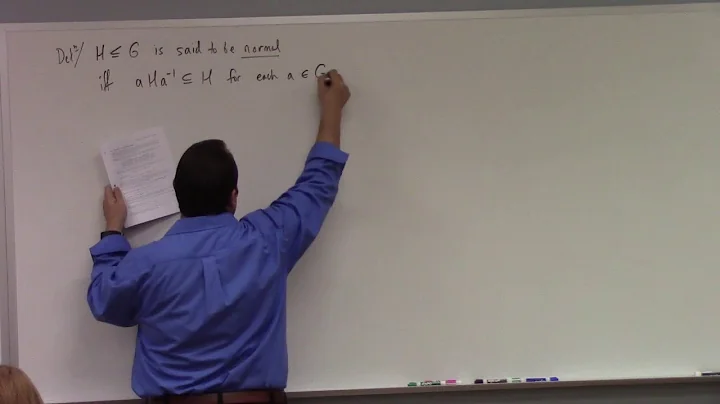 Defⁿ/ H ≤ G is said to be normal
iff a H a⁻¹ ⊆ H for each a ∈ G